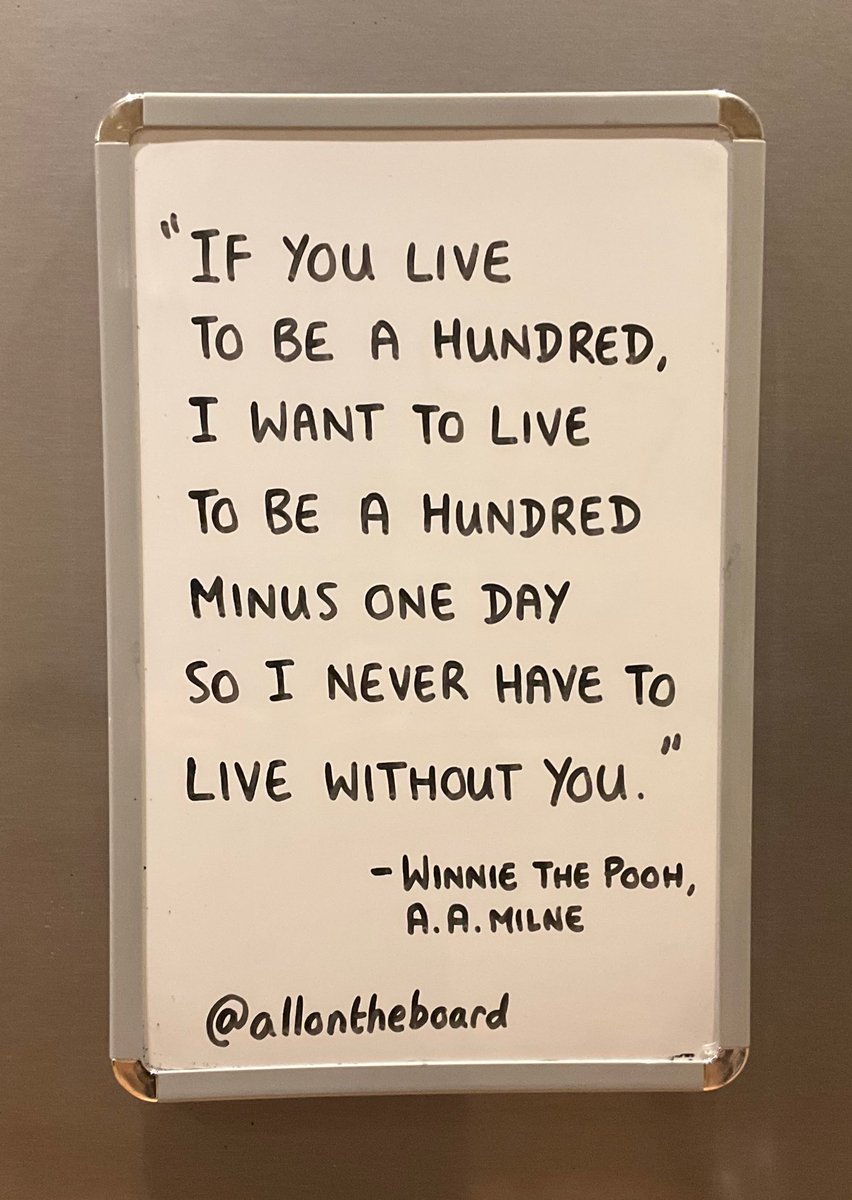 "IF YOU LIVE
TO BE A HUNDRED,
I WANT TO LIVE
TO BE A HUNDRED
MINUS ONE DAY
SO I NEVER HAVE TO
LIVE WITHOUT YOU."
- WINNIE THE POOH,
A.A. MILNE
@allontheboard